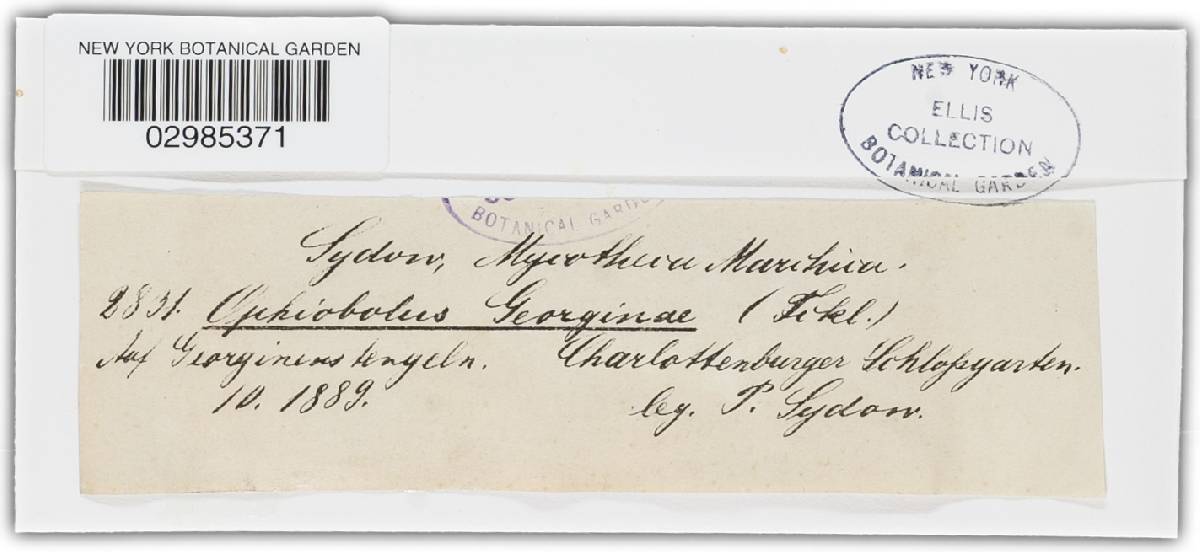 NEW YORK BOTANICAL GARDEN
02985371
NEW YORK
ELLIS
COLLECTION
BOTANICAL GARDEN
BOTANICAL GARDEN
Sydow, Mycotheca Marchica.
2831. Ophiobolus Georginae (Fckl.)
Auf Georginenstengeln. Charlottenburger Schloßgarten.
10. 1889. leg. P. Sydow.